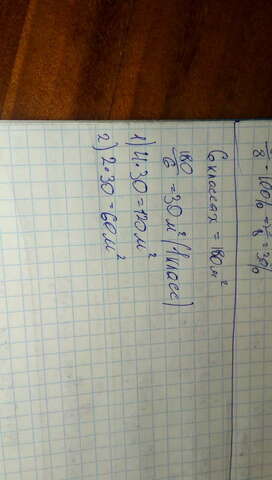 6 классах = 180 м²
180/6 = 30 м² (1 класс)
1) 4·30 = 120 м²
2) 2·30 = 60 м²